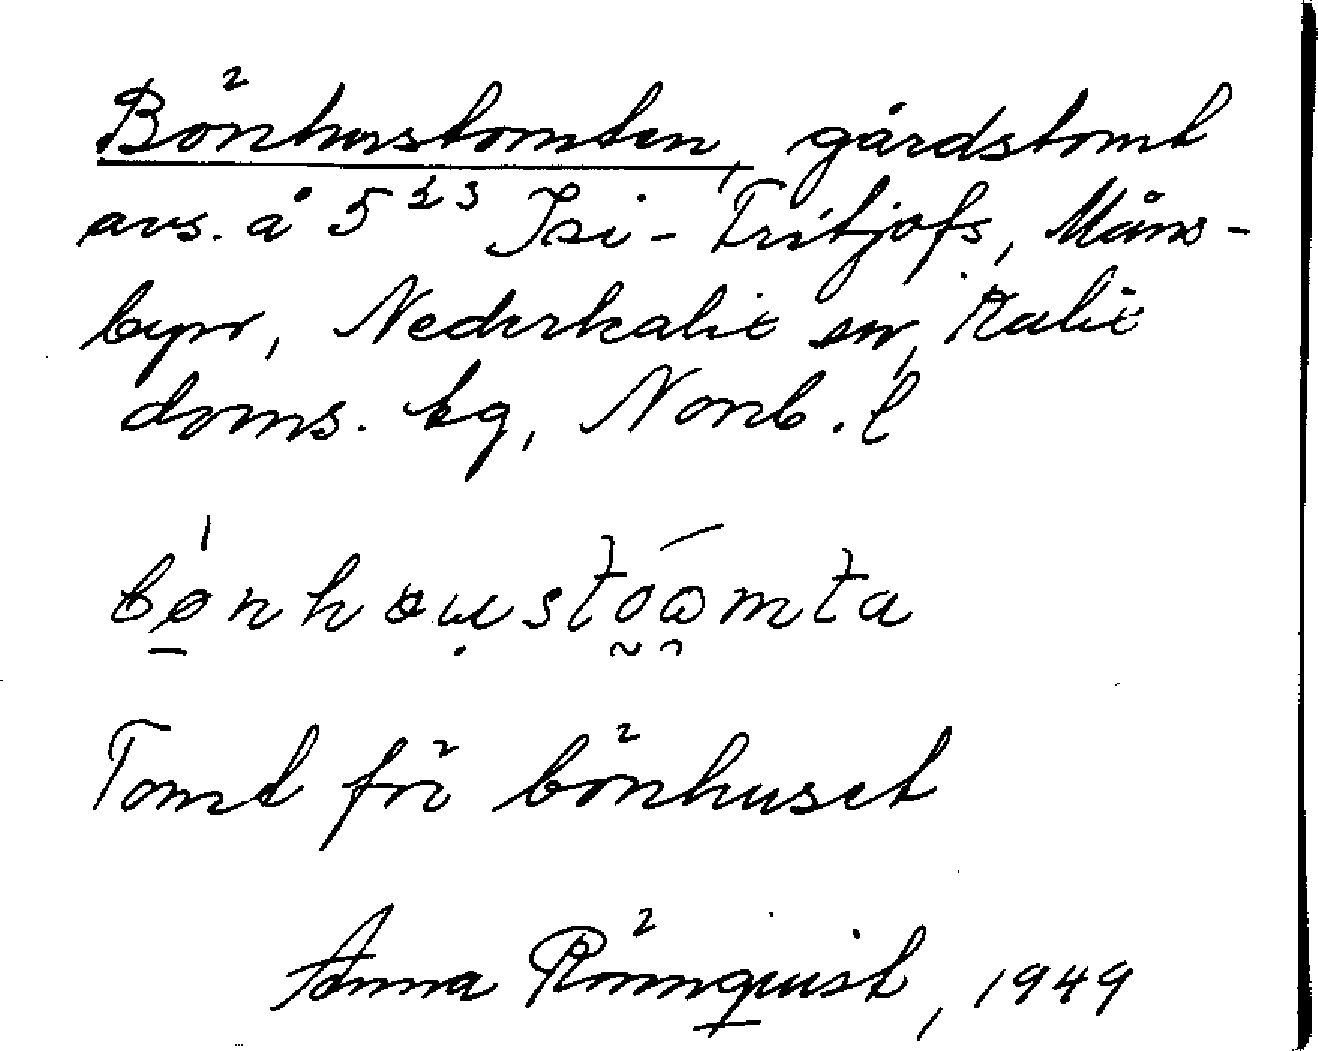 Bönhustomten, gårdstomt
avs. å 5²³ Isi-Fritjofs, Måns-
byn, Nederkalix sn, Kalix
doms. tg, Norrb. l
bønhɷustoɷmta
Tomt för bönhuset
Anna Rönnquist, 1949